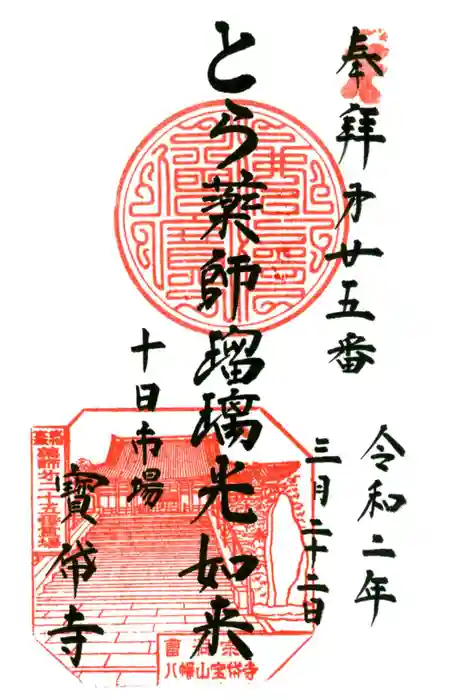 奉拜 第廿五番
令和二年
三月二十二日
とら薬師瑠璃光如来
十日市場
寳帒寺
八幡山宝袋寺